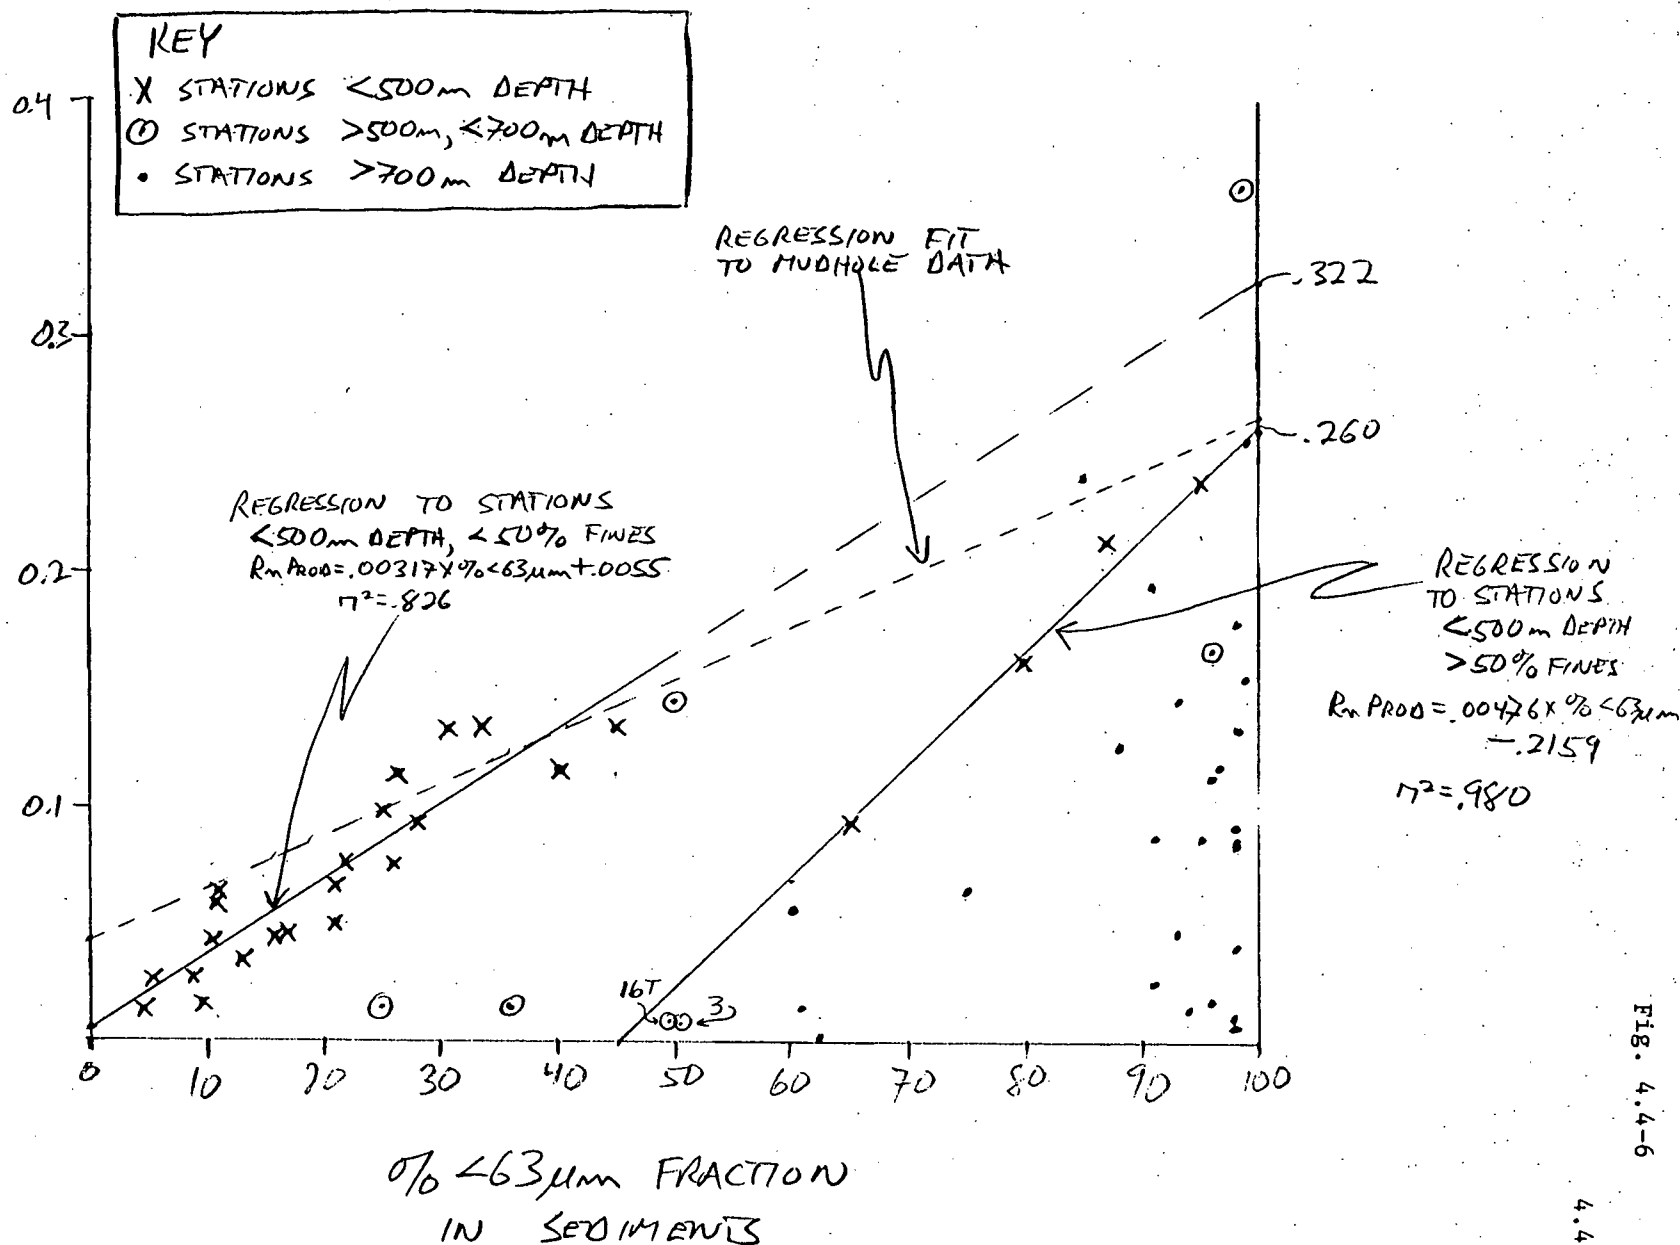 KEY
X STATIONS <500m DEPTH
⊙ STATIONS >500m, <700m DEPTH
• STATIONS >700m DEPTH
0.4
0.3
0.2
0.1
REGRESSION FIT
TO MUDHOLE DATA
.322
.260
REGRESSION TO STATIONS
<500m DEPTH, <50% FINES
Rn PROD=.00317X%<63µm+.0055
r²=.826
REGRESSION
TO STATIONS
<500m DEPTH
>50% FINES
Rn PROD=.00476x%<63µm
-.2159
r²=.980
16T
3
0 10 20 30 40 50 60 70 80 90 100
% <63µm FRACTION
IN SEDIMENTS
Fig. 4.4-6
4.4